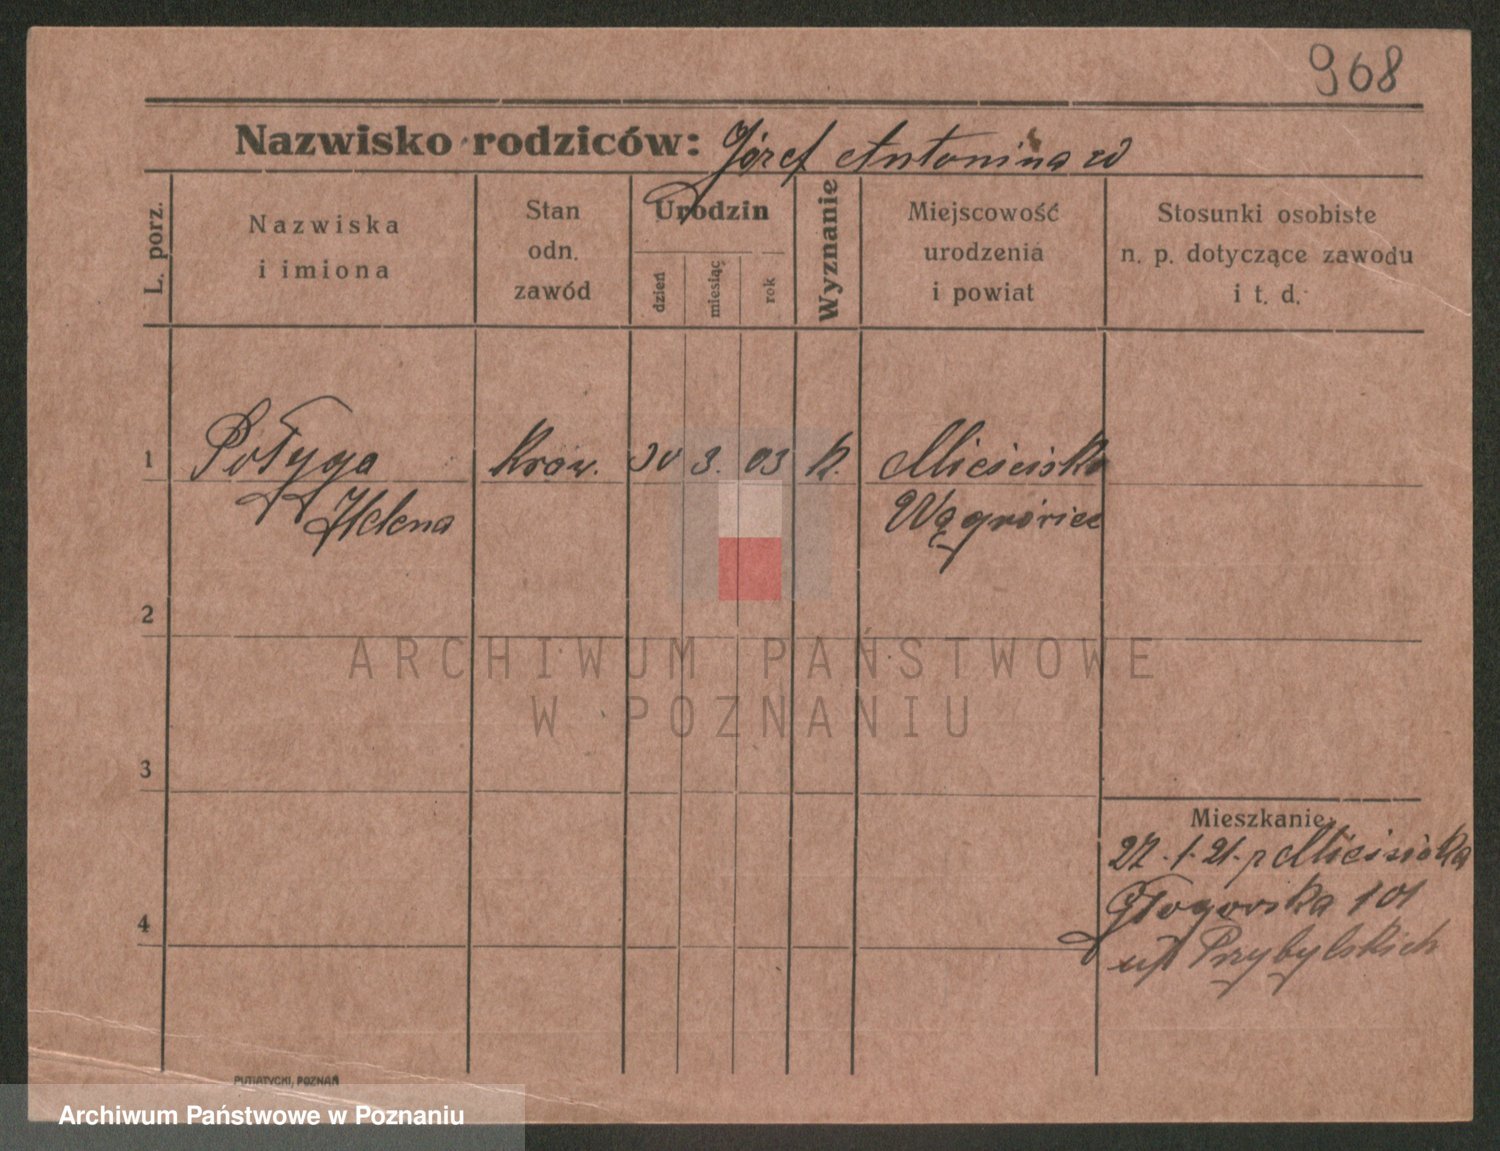 968
Nazwisko rodziców: Józef Antonina w
L. porz.
Nazwiska
i imiona
Stan
odn.
zawód
Urodzin
dzień
miesiąc
rok
Wyznanie
Miejscowość
urodzenia
i powiat
Stosunki osobiste
n. p. dotyczące zawodu
i t. d.
1 Połyga kraw. 30 3. 03 k. Mieścisko
Helena Wągrówiec
2
3
4
Mieszkanie
27.1.21. p Mieściska
Głogowska 101
u/ Przybylskich
PUTIATYCKI, POZNAŃ
ARCHIWUM PAŃSTWOWE
W POZNANIU
Archiwum Państwowe w Poznaniu